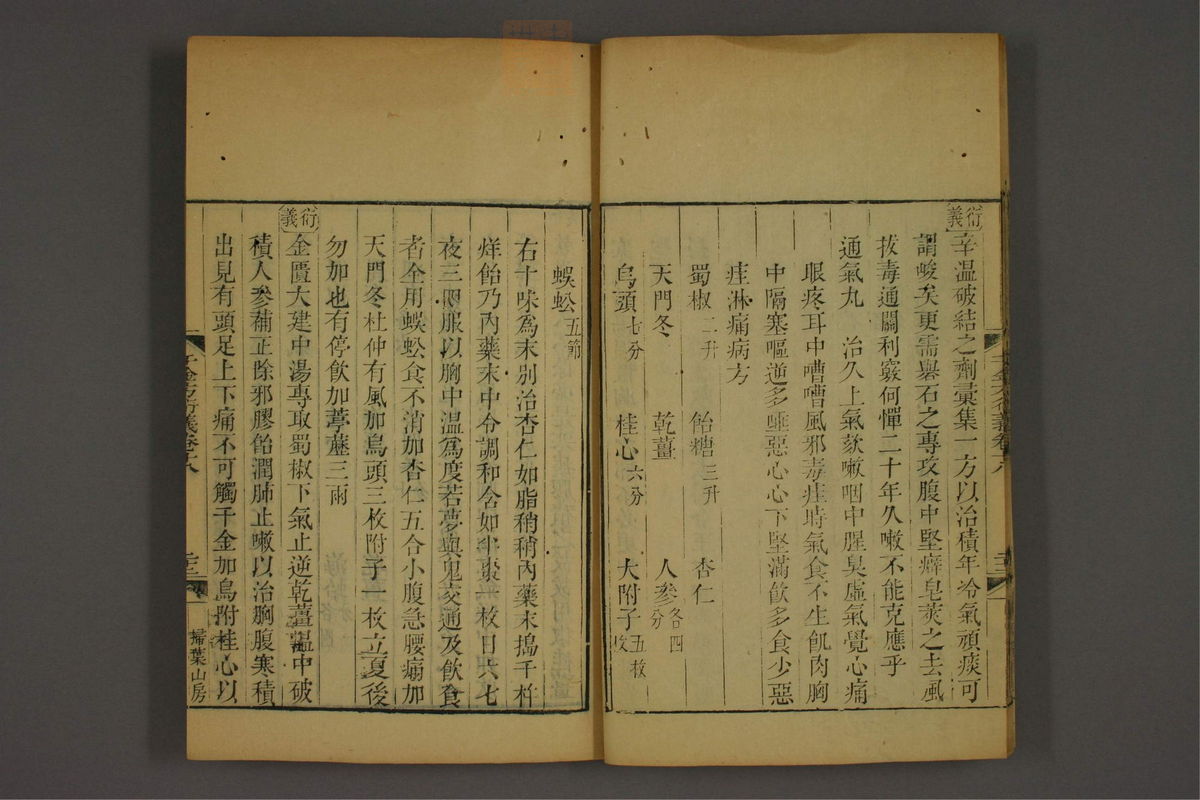 衍義
辛溫破結之劑彙集一方以治積年冷氣頑痰可
謂峻矣更需礜石之專攻腹中堅癖皂莢之去風
拔毒通關利竅何憚二十年久嗽不能克應乎
通氣丸　治久上氣欬嗽咽中腥臭虛氣覺心痛
眼疼耳中嘈嘈風邪毒疰時氣食不生飢肉胸
中隔塞嘔逆多唾惡心心下堅滿飲多食少惡
疰淋痛病方
蜀椒二升　飴糖三升　杏仁
天門冬　乾薑　人參各四分
烏頭七分　桂心六分　大附子五枚
蜈蚣五節
右十味為末別治杏仁如脂稍稍內藥末搗千杵
烊飴乃內藥末中令調和含如半棗一枚日六七
夜三四服以胸中溫為度若夢與鬼交通及飲食
者全用蜈蚣食不消加杏仁五合小腹急腰痛加
天門冬杜仲有風加烏頭三枚附子一枚立夏後
勿加也有停飲加葶藶三兩
衍義
金匱大建中湯專取蜀椒下氣止逆乾薑溫中破
積人參補正除邪膠飴潤肺止嗽以治胸腹寒積
出見有頭足上下痛不可觸千金加烏附桂心以
千金方衍義卷十八
掃葉山房